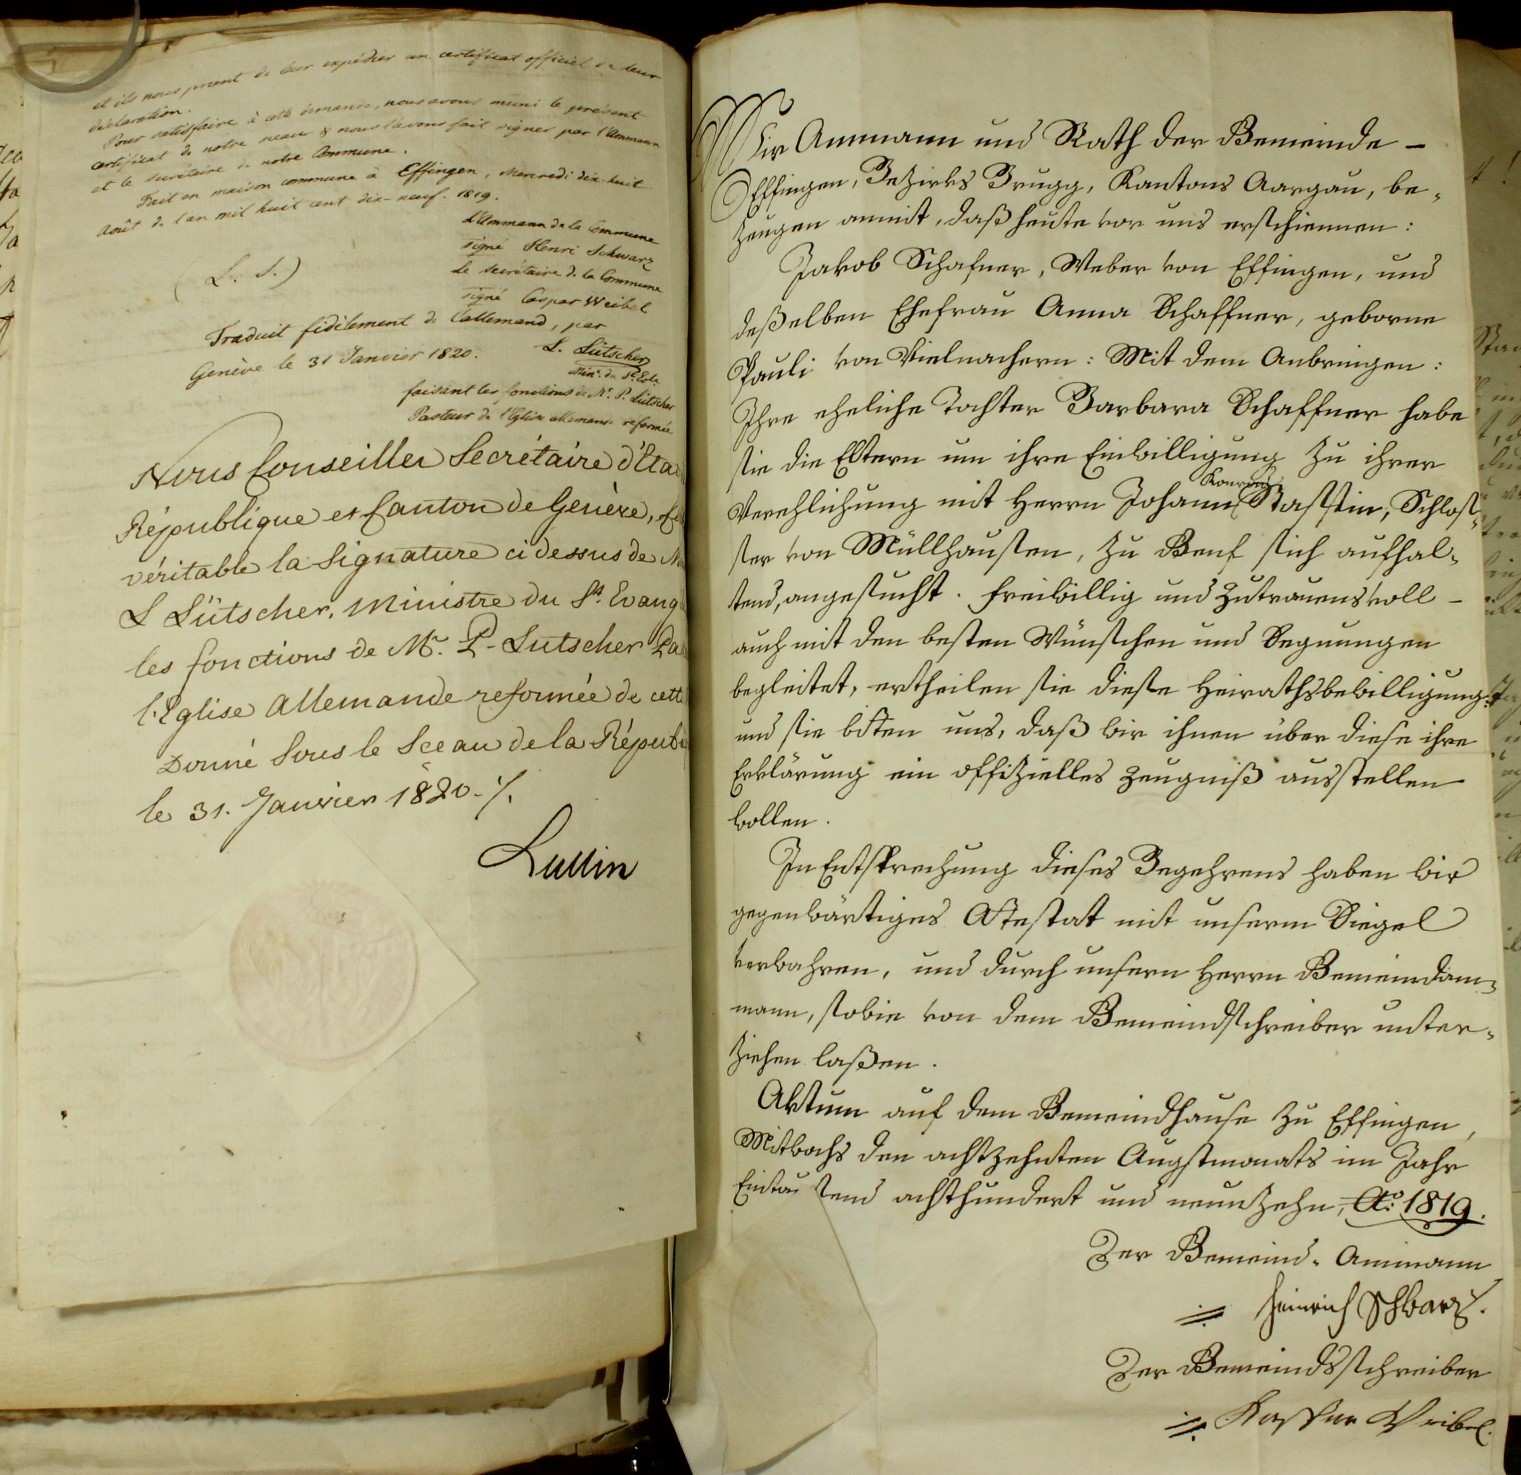 et ils nous prient de leur expédier un certificat officiel de leur
déclaration.
Pour satisfaire à cette demande, nous avons muni le présent
certificat de notre sceau & nous l'avons fait signer par l'Ammann
et le secrétaire de notre Commune.
Fait en maison commune à Effingen, Mercredi dix-huit
Août de l'an mil huit cent dix-neuf. 1819.
L'Ammann de la Commune
signé Henri Schwarz
Le secrétaire de la Commune
signé Caspar Weibel
(L. S.)
Traduit fidèlement de l'allemand, par
Genève le 31 Janvier 1820.
L. Lütscher
Min. du St. Ev.
faisant les fonctions de Mr. P. Lütscher
Pasteur de l'Eglise allemande reformée
Nous Conseiller Secrétaire d'Eta
République et Canton de Genève,
véritable la Signature ci dessus de M
L Lütscher, Ministre du St. Evang
les fonctions de Mr. P. Lutscher Pa
l'Eglise Allemande reformée de cett
Donné Sous le Sceau de la Répub
le 31. Janvier 1820 ./.
Lullin
Wir Ammann und Rath der Gemeinde -
Effingen, Bezirks Brugg, Kantons Aargau, be-
zeugen anmit, daß heute vor uns erschiennen:
Jakob Schafner, Weber von Effingen, und
deßelben Ehefrau Anna Schaffner, geborne
Pauli von Vielnachern: Mit dem Anbringen:
Ihre eheliche Tochter Barbara Schaffner habe
sie die Eltern um ihre Einwilligung zu ihrer
Verehlichung mit Herrn Johann Konrad, Schlos-
ser von Müllhausen, zu Genf sich aufhal-
tend, angesucht. Freiwillig und Zutrauensvoll -
auch mit den besten Wünschen und Segnungen
begleitet, ertheilen sie diese Heirathsbewilligung:
und sie bitten uns, daß wir ihnen über diese ihre
Erklärung ein offizielles Zeugniß ausstellen
wollen.
In Entsprechung dieses Begehrens haben wir
gegenwärtiges Attestat mit unserm Siegel
verwahren, und durch unsern Herrn Gemeindam-
mann, sowie von dem Gemeindschreiber unter-
ziehen laßen.
Aktum auf dem Gemeindhause zu Effingen,
Mitwochs den achtzehnten Augstmonats im Jahr
Eintausend achthundert und neunzehn, Ao. 1819.
Der Gemeind-Ammann
Heinrich Schwarz.
Der Gemeindsschreiber
Kaspar Weibel.